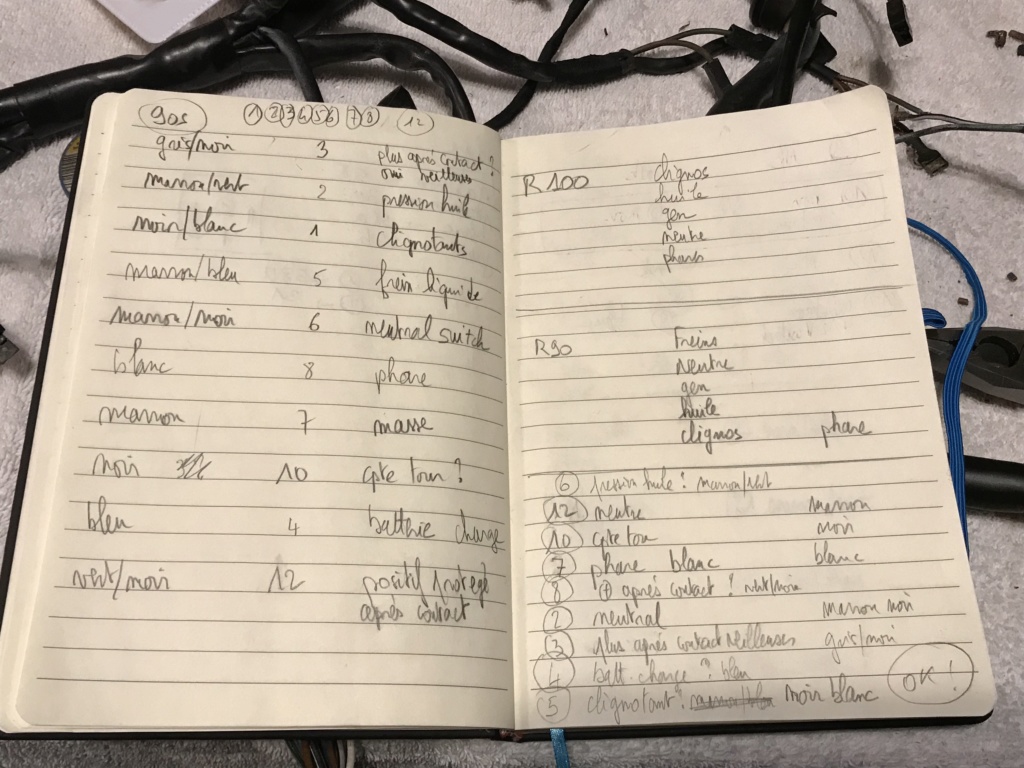 90s ① ② ③ ④ ⑤ ⑥ ⑦ ⑧ ⑫
gris/noir 3 plus après contact ?
oui veilleuses
marron/vert 2 pression huile
noir/blanc 1 clignotants
marron/bleu 5 frein liquide
marron/noir 6 neutral switch
blanc 8 phare
marron 7 masse
noir 10 cpte tour ?
bleu 4 batterie charge
vert/noir 12 positif protégé
après contact
R100 clignos
huile
gen
neutre
phares
R90 Freins
neutre
gen
huile
clignos phare
⑥ pression huile ? marron/vert
⑫ neutre marron
⑩ cpte tour noir
⑦ phare blanc blanc
⑧ ⊕ après contact ? vert/noir
② neutral marron noir
③ plus après contact veilleuses gris/noir
④ batt. charge ? bleu
⑤ clignotant ? noir blanc
OK !